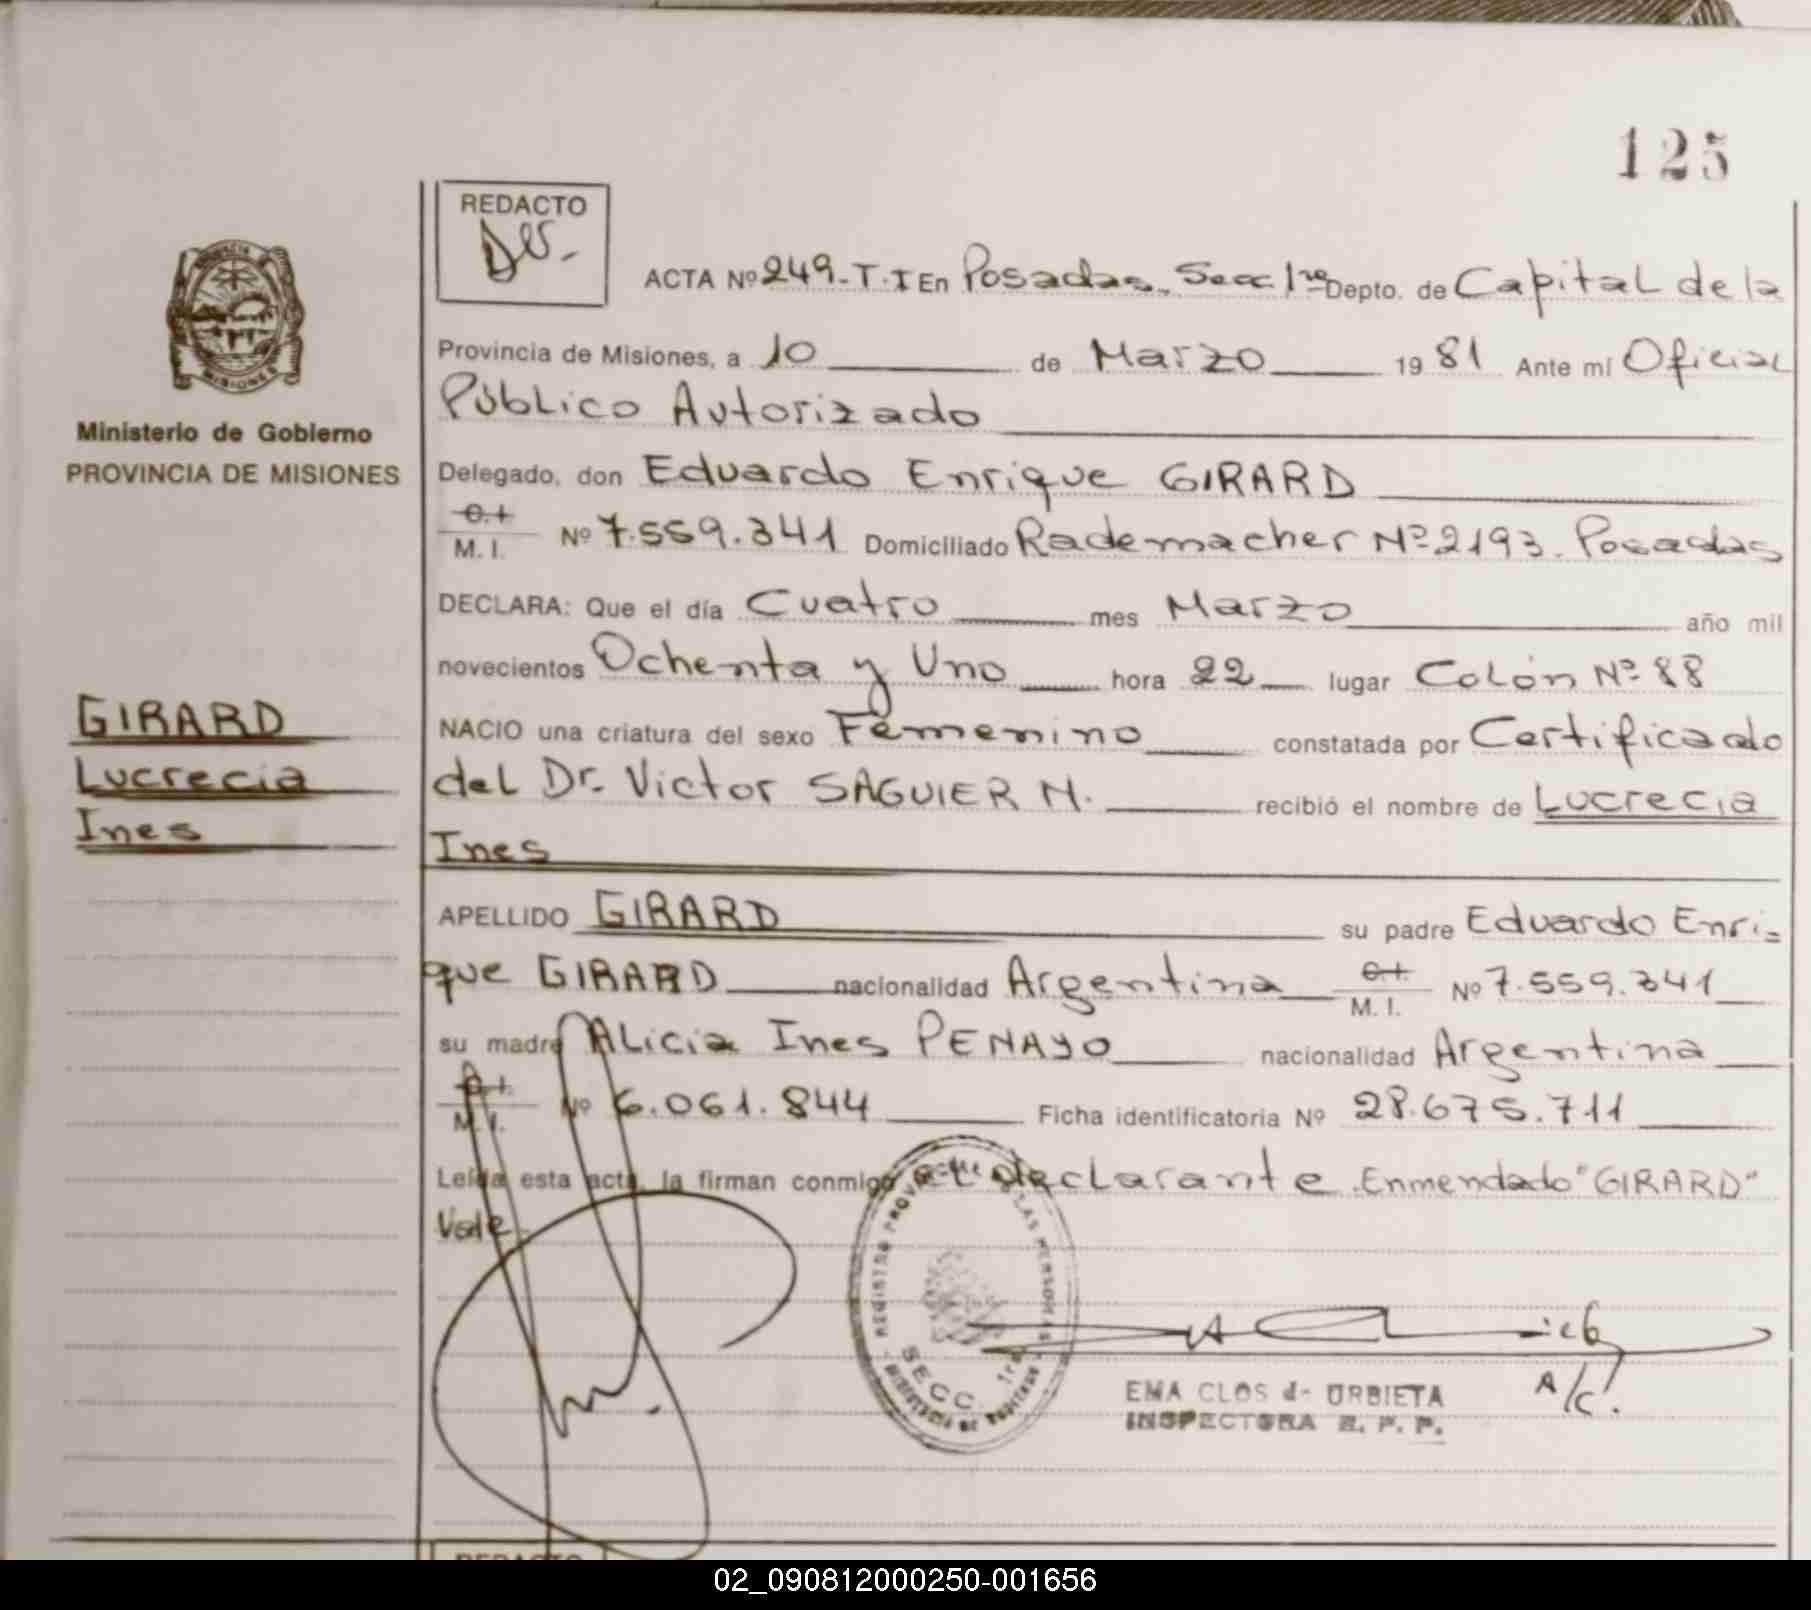 125
REDACTO
ACTA Nº 249-T.I En Posadas. Secc 1ra Depto. de Capital de la
Provincia de Misiones, a 10 de Marzo 1981 Ante mí Oficial
Público Autorizado
Ministerio de Gobierno
PROVINCIA DE MISIONES
Delegado, don Eduardo Enrique GIRARD
C.I. M.I. Nº 7.559.341 Domiciliado Rademacher Nº 2193. Posadas
DECLARA: Que el día Cuatro mes Marzo año mil
novecientos Ochenta y Uno hora 22 lugar Colón Nº 88
GIRARD
Lucrecia
Ines
NACIO una criatura del sexo Femenino constatada por Certificado
del Dr. Victor SAGUIER M. recibió el nombre de Lucrecia
Ines
APELLIDO GIRARD su padre Eduardo Enri=
que GIRARD nacionalidad Argentina C.I. M.I. Nº 7.559.341
su madre Alicia Ines PENAYO nacionalidad Argentina
C.I. M.I. Nº 6.061.844 Ficha identificatoria Nº 28.675.711
Leída esta acta, la firman conmigo el declarante. Enmendado "GIRARD"
Vale.
REGISTRO PROV DE LAS PERSONAS
SECC. 1ra
EMA CLOS d- URBIETA
INSPECTORA R. P. P.
A/C!
REDACTO
02_090812000250-001656